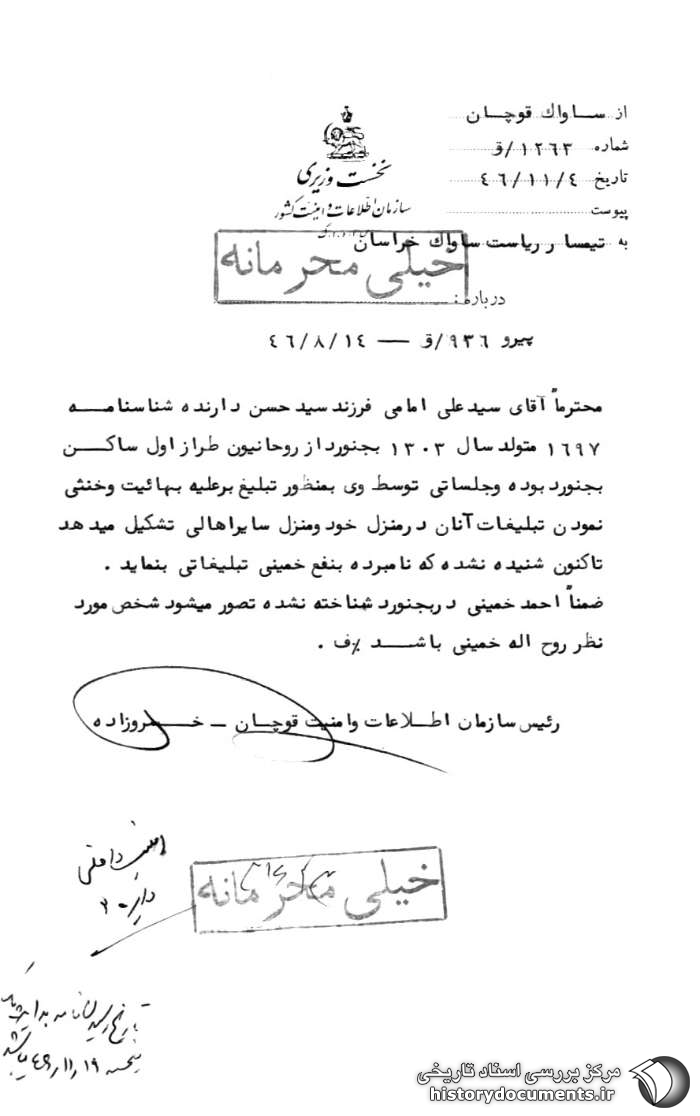 از ساواك قوچان
شماره ۱۲۶۳/ق
تاریخ ۴۶/۱۱/۴
پیوست
به تیمسار ریاست ساواك خراسان
نخست وزیری
سازمان اطلاعات و امنیت کشور
س.ا.و.ا.ک
خیلی محرمانه
درباره :
پیرو ۹۳۶/ق — ۴۶/۸/۱۴
محترماً آقای سیدعلی امامی فرزند سیدحسن دارنده شناسنامه
۱۶۹۷ متولد سال ۱۳۰۳ بجنورد از روحانیون طراز اول ساکن
بجنورد بوده وجلساتی توسط وی بمنظور تبلیغ برعلیه بهائیت وخنثی
نمودن تبلیغات آنان درمنزل خود ومنزل سایراهالی تشکیل میدهد
تاکنون شنیده نشده که نامبرده بنفع خمینی تبلیغاتی بنماید .
ضمناً احمد خمینی دربجنورد شناخته نشده تصور میشود شخص مورد
نظر روح اله خمینی باشد ٪ف .
رئیس سازمان اطلاعات وامنیت قوچان – خسروزاده
امنیت داخلی
دایره ۳
خیلی محرمانه
تاریخ رسیدن نامه به
پنجشنبه ۱۹ر۱۱ر۴۶ میباشد
مرکز بررسی اسناد تاریخی
historydocuments.ir